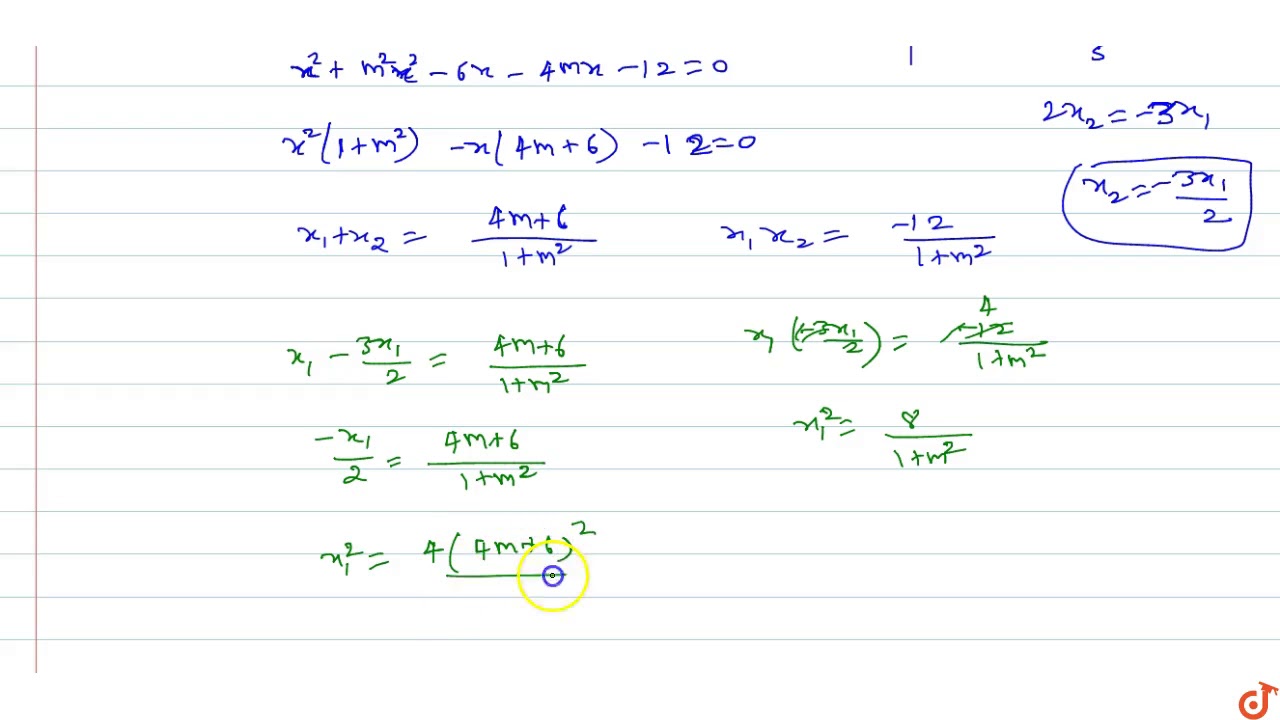 x² + m²x² - 6x - 4mx - 12 = 0
1 5
2x₂ = -3x₁
x²(1+m²) - x(4m+6) - 12 = 0
x₂ = -3x₁/2
x₁ + x₂ = (4m+6)/(1+m²) x₁x₂ = -12/(1+m²)
x₁ - 3x₁/2 = (4m+6)/(1+m²) x₁(-3x₁/2) = -12/(1+m²) 4
-x₁/2 = (4m+6)/(1+m²) x₁² = 8/(1+m²)
x₁² = 4(4m+6)²